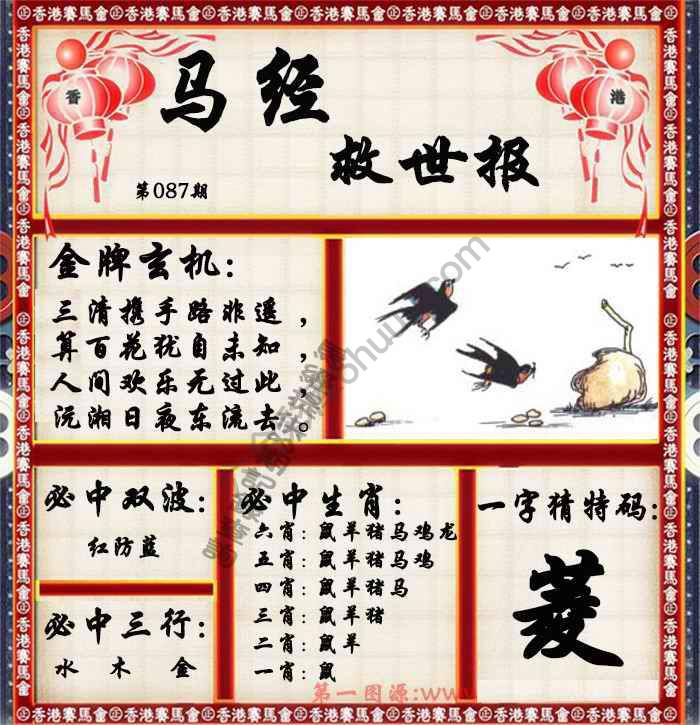 香港賽馬會
香
港
马经
救世报
第087期
金牌玄机：
三清携手路非遥，
算百花犹自未知，
人间欢乐无过此，
沅湘日夜东流去。
必中双波：
红防蓝
必中三行：
水 木 金
必中生肖：
六肖：鼠羊猪马鸡龙
五肖：鼠羊猪马鸡
四肖：鼠羊猪马
三肖：鼠羊猪
二肖：鼠羊
一肖：鼠
一字猜特码：
菱
第一图源:www